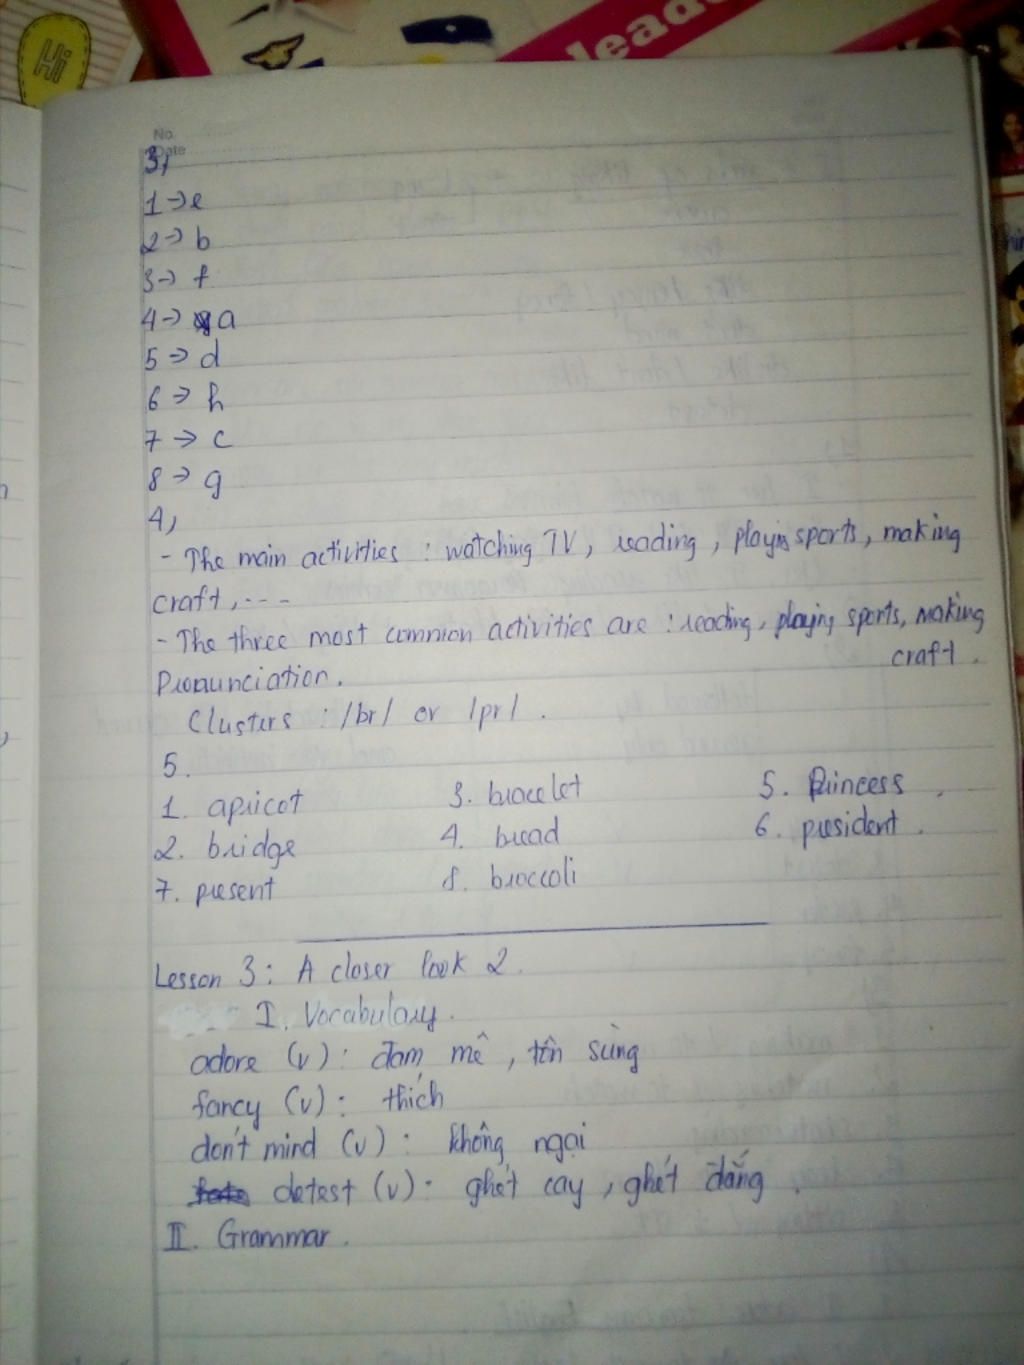 Hi
leade
No.
Date
3,
1 → e
2 → b
3 → f
4 → a
5 → d
6 → h
7 → c
8 → g
4,
- The main activities : watching TV, reading, playing sports, making
craft, ---
- The three most common activities are : reading, playing sports, making
craft.
Pronunciation.
Clusters : /br/ or /pr/.
5.
1. apricot 3. bracelet 5. Princess.
2. bridge 4. bread 6. president.
7. present 8. broccoli
Lesson 3: A closer look 2.
I. Vocabulary.
adore (v): đam mê, tôn sùng
fancy (v): thích
don't mind (v): không ngại
detest (v): ghét cay, ghét đắng.
II. Grammar.